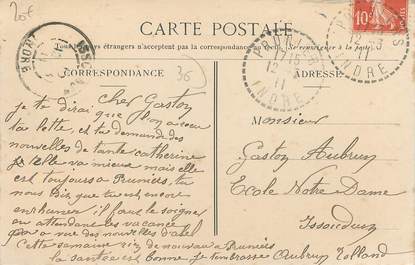 20f
CARTE POSTALE
Tous les pays étrangers n'acceptent pas la correspondance au recto. (Se renseigner à la poste).
CORRESPONDANCE
36
ADRESSE
10c
12 - 3
11
INDRE
INDRE
Cher Gaston
je te dirai que l'on a reçu
ta lettre et tu demande des
nouvelles de tante catherine
elle va mieux mais elle
est toujours a Pruniers tu
nous dis que tu est encore
enrhumer il faut te soigner
en attendant les vacance
on a eu des nouvelles d'abel
Cette semaine rien de nouveau a Pruniers
la santee est bonne je t'embrasse Aubrun Rolland
Monsieur
Gaston Aubrun
Ecole Notre Dame
Issoudun
Indre